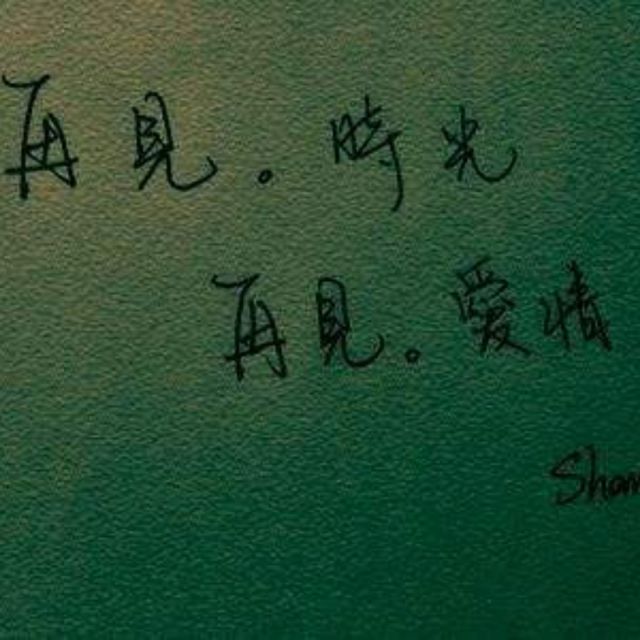 再見。時光
再見。愛情